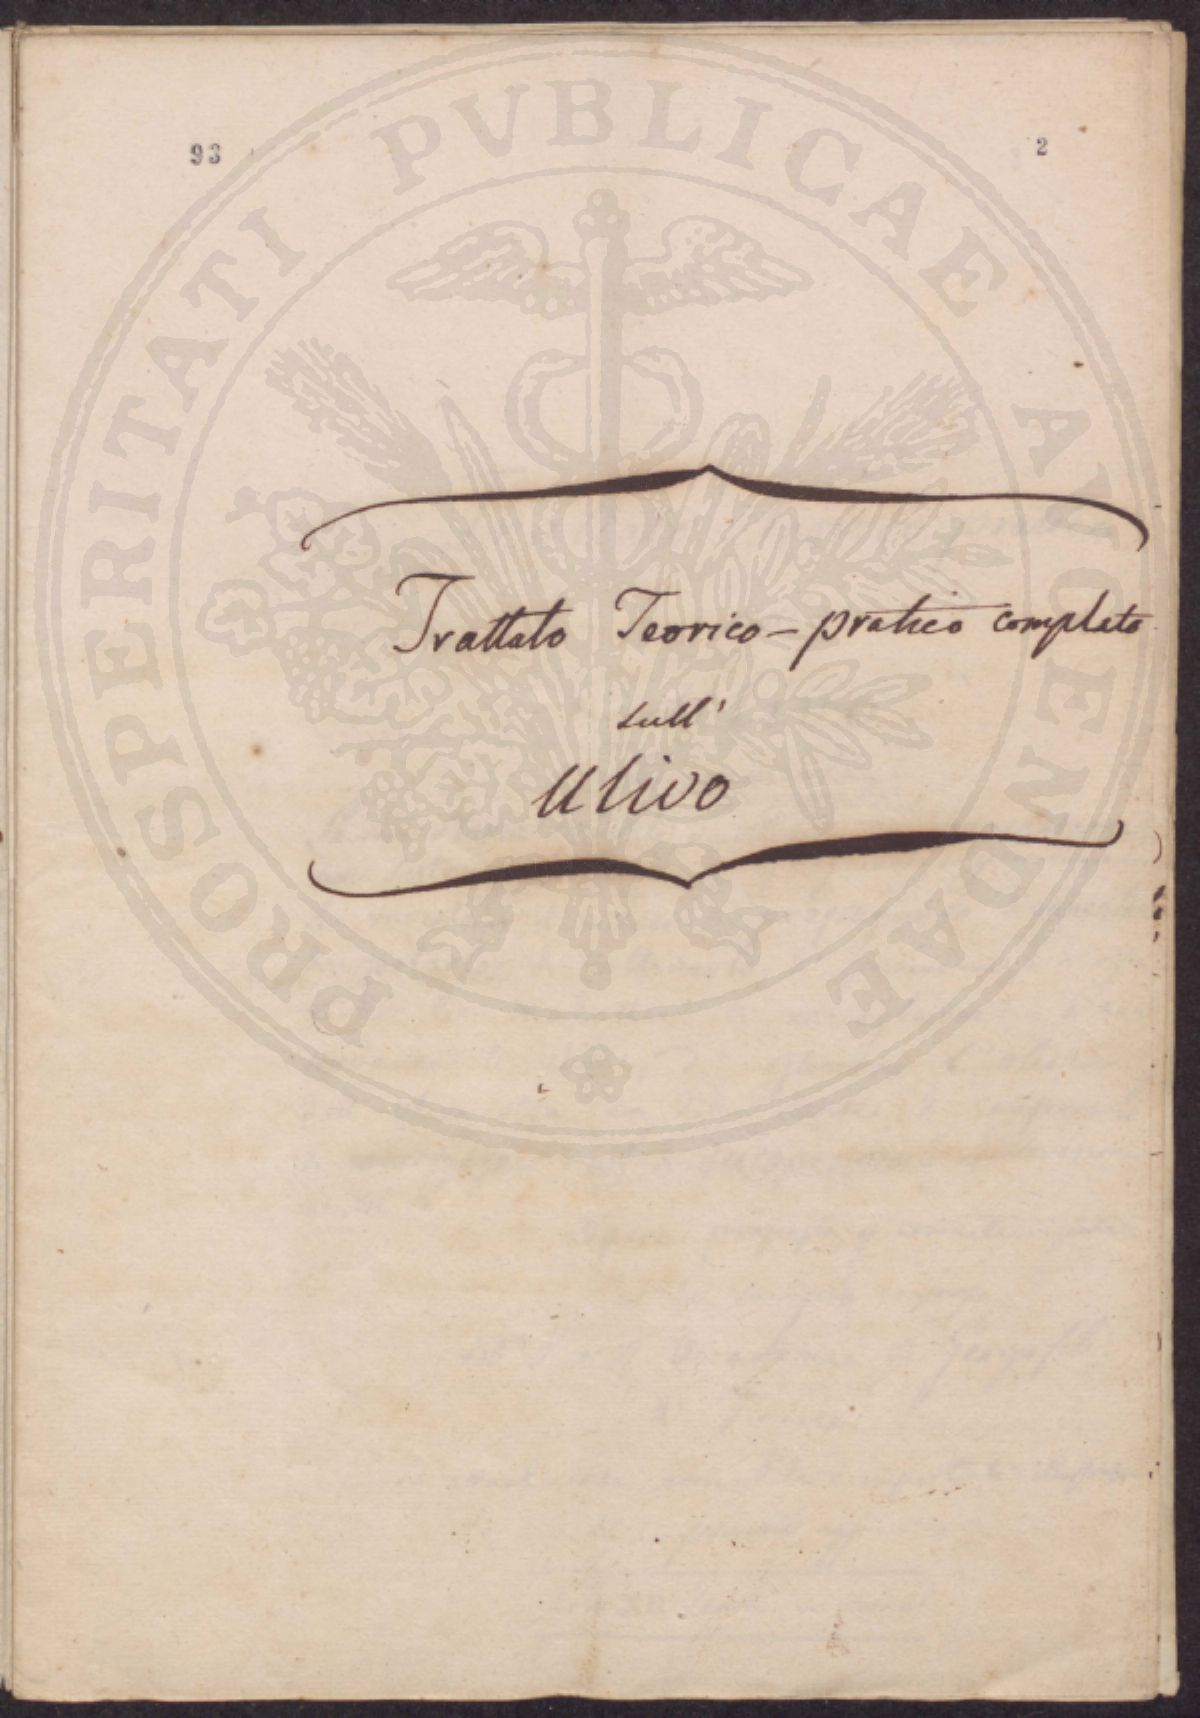 93
2
PROSPERITATI PVBLICAE AVGENDAE
Trattato Teorico-pratico completo
sull'
Ulivo